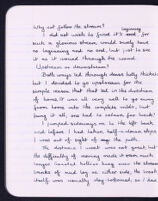 Why not follow the stream?
beginning
I did not wish to find it's end, for
such a glorious stream would surely have
no beginning and no end, but just to see
it as it wound through the wood.
Upstream or downstream?
Both ways led through dense leafy thickets
but I decided to go upstream for the
simple reason that that led in the direction
of home. It was all very well to go away
from home into the complete wilds, but
hang it all, one had to return for lunch!
I jumped sideways on to the left bank
and before I had taken half a dozen steps
I was out of sight of my the path.
The distance I went was not great but
the difficulty of moving made it seem much
longer
banks of mud lay on either side, the
itself was usually deep enough, so I had